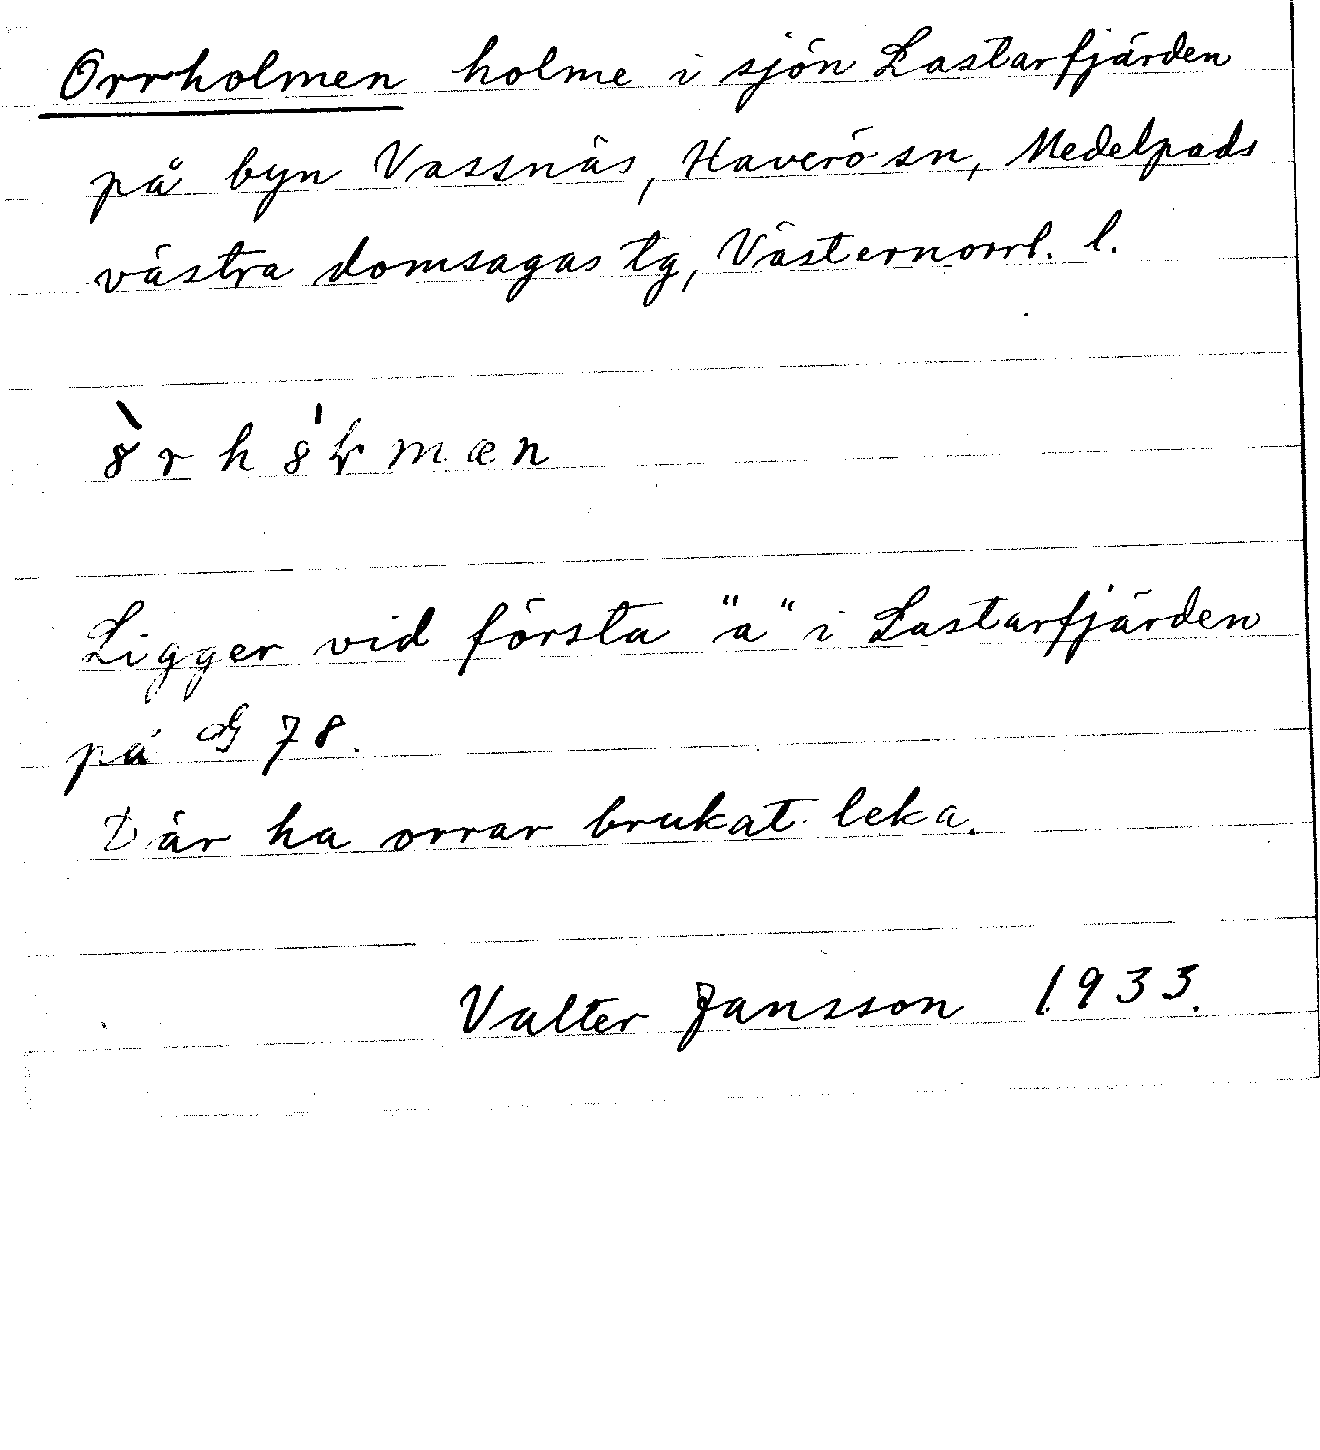 Orrholmen holme i sjön Lastarfjärden
på byn Vassnäs, Haverö sn, Medelpads
västra domsagas tg, Västernorrl. l.
Ligger vid första "a" i Lastarfjärden
på G 78.
Där ha orrar brukat leka.
Valter Jansson 1933.